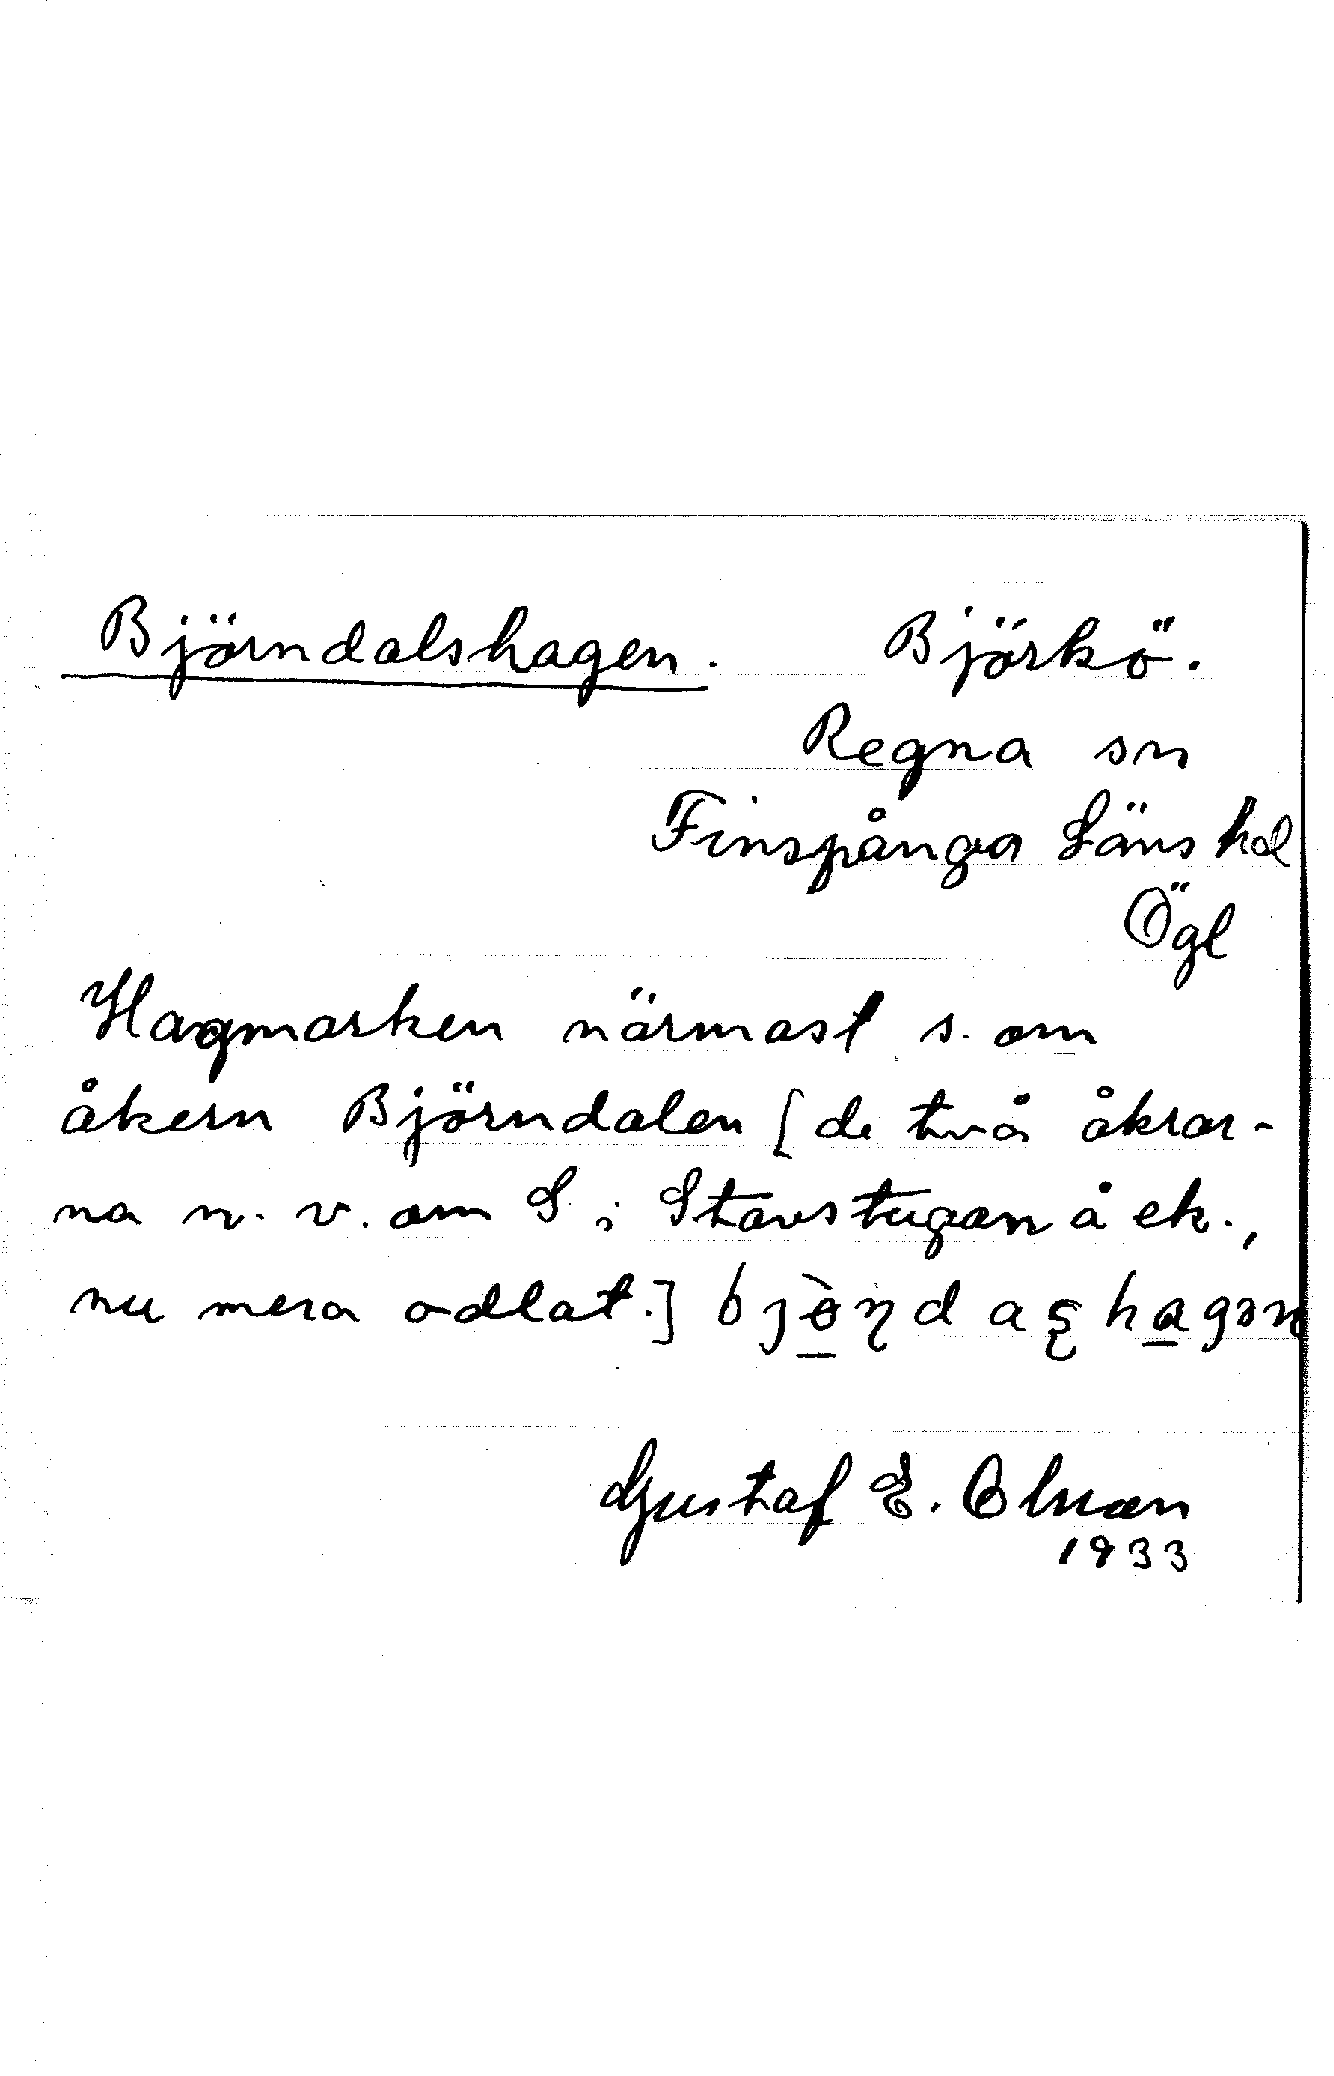 Björndalshagen. Björkö.
Regna sn
Finspånga Läns hd
Ögl
Hagmarken närmast s. om
åkern Björndalen [de två åkrar-
na n. v. om S i Stavstugan å ek.,
nu mera odlat.] bjɵ̀ɳdaʂhagən
Gustaf E. Olsson
1933